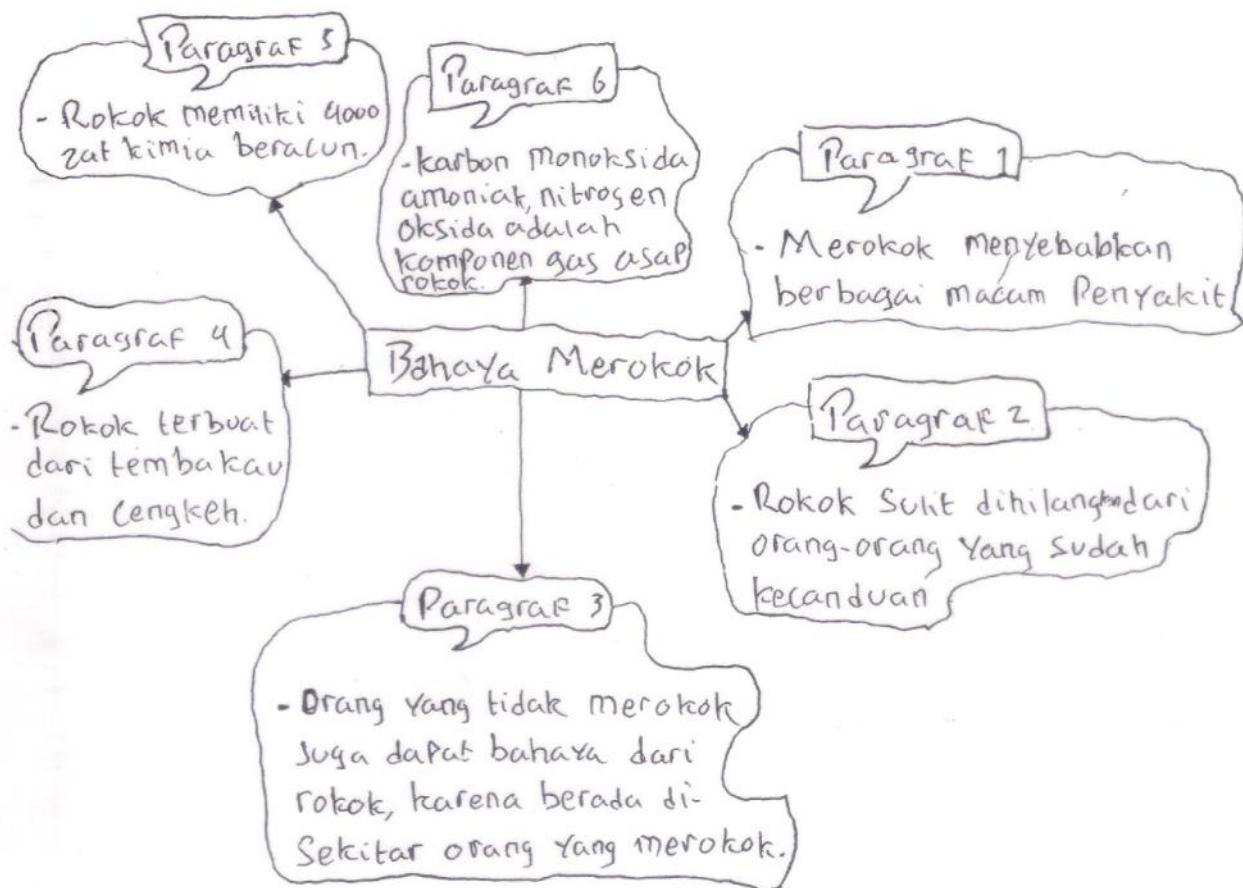 Paragraf 5
- Rokok memiliki 4000
zat kimia beracun.
Paragraf 6
- karbon monoksida
amoniak, nitrogen
oksida adalah
komponen gas asap
rokok.
Paragraf 1
- Merokok menyebabkan
berbagai macam Penyakit
Bahaya Merokok
Paragraf 4
- Rokok terbuat
dari tembakau
dan cengkeh.
Paragraf 2
- Rokok Sulit dihilangkan dari
orang-orang yang sudah
kecanduan
Paragraf 3
- Orang yang tidak merokok
Juga dapat bahaya dari
rokok, karena berada di-
Sekitar orang yang merokok.